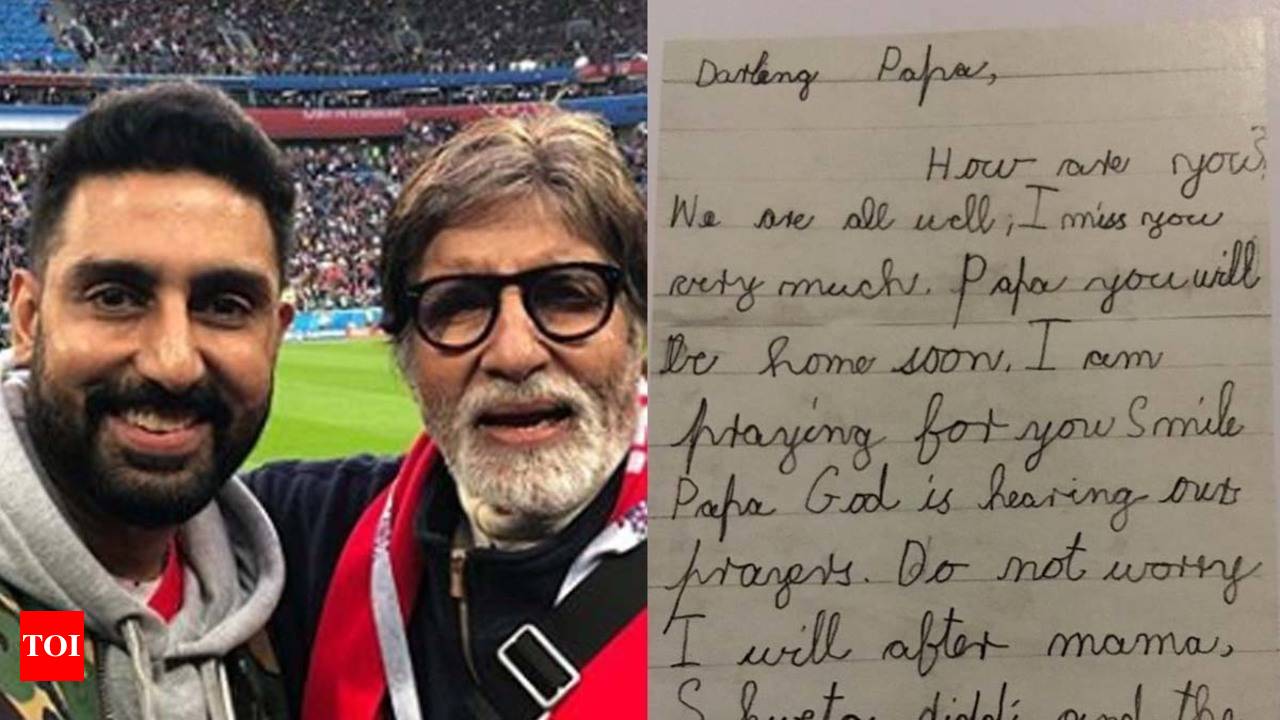 TOI
Darling Papa,
How are you?
We are all well, I miss you
very much. Papa you will
be home soon. I am
praying for you Smile
Papa God is hearing our
prayers. Do not worry
I will after mama,
Shweta diddi and the